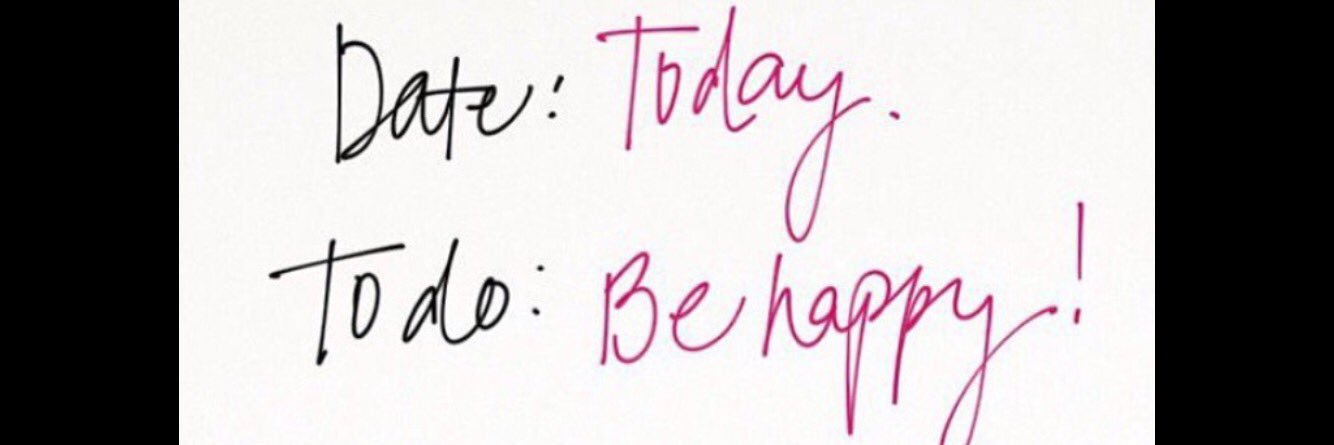 Date: Today.
To do: Be happy!